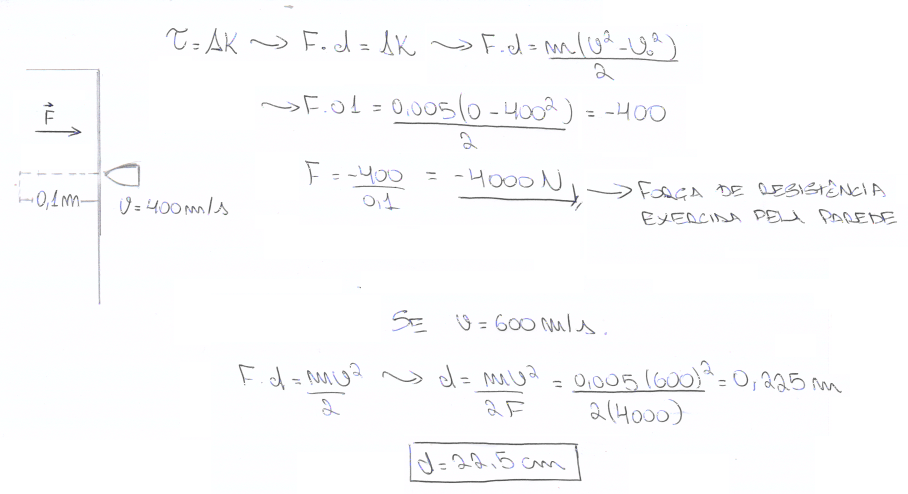 τ = ΔK ⤳ F.d = ΔK ⤳ F.d = m(v²-v₀²)/2
⤳ F.01 = 0,005(0-400²)/2 = -400
F⃗
0,1m
v=400m/s
F = -400/0,1 = -4000N → FORÇA DE RESISTÊNCIA
EXERCIDA PELA PAREDE
SE v=600m/s.
F.d = mv²/2 ⤳ d = mv²/2F = 0,005(600)²/2(4000) = 0,225m
d=22,5cm